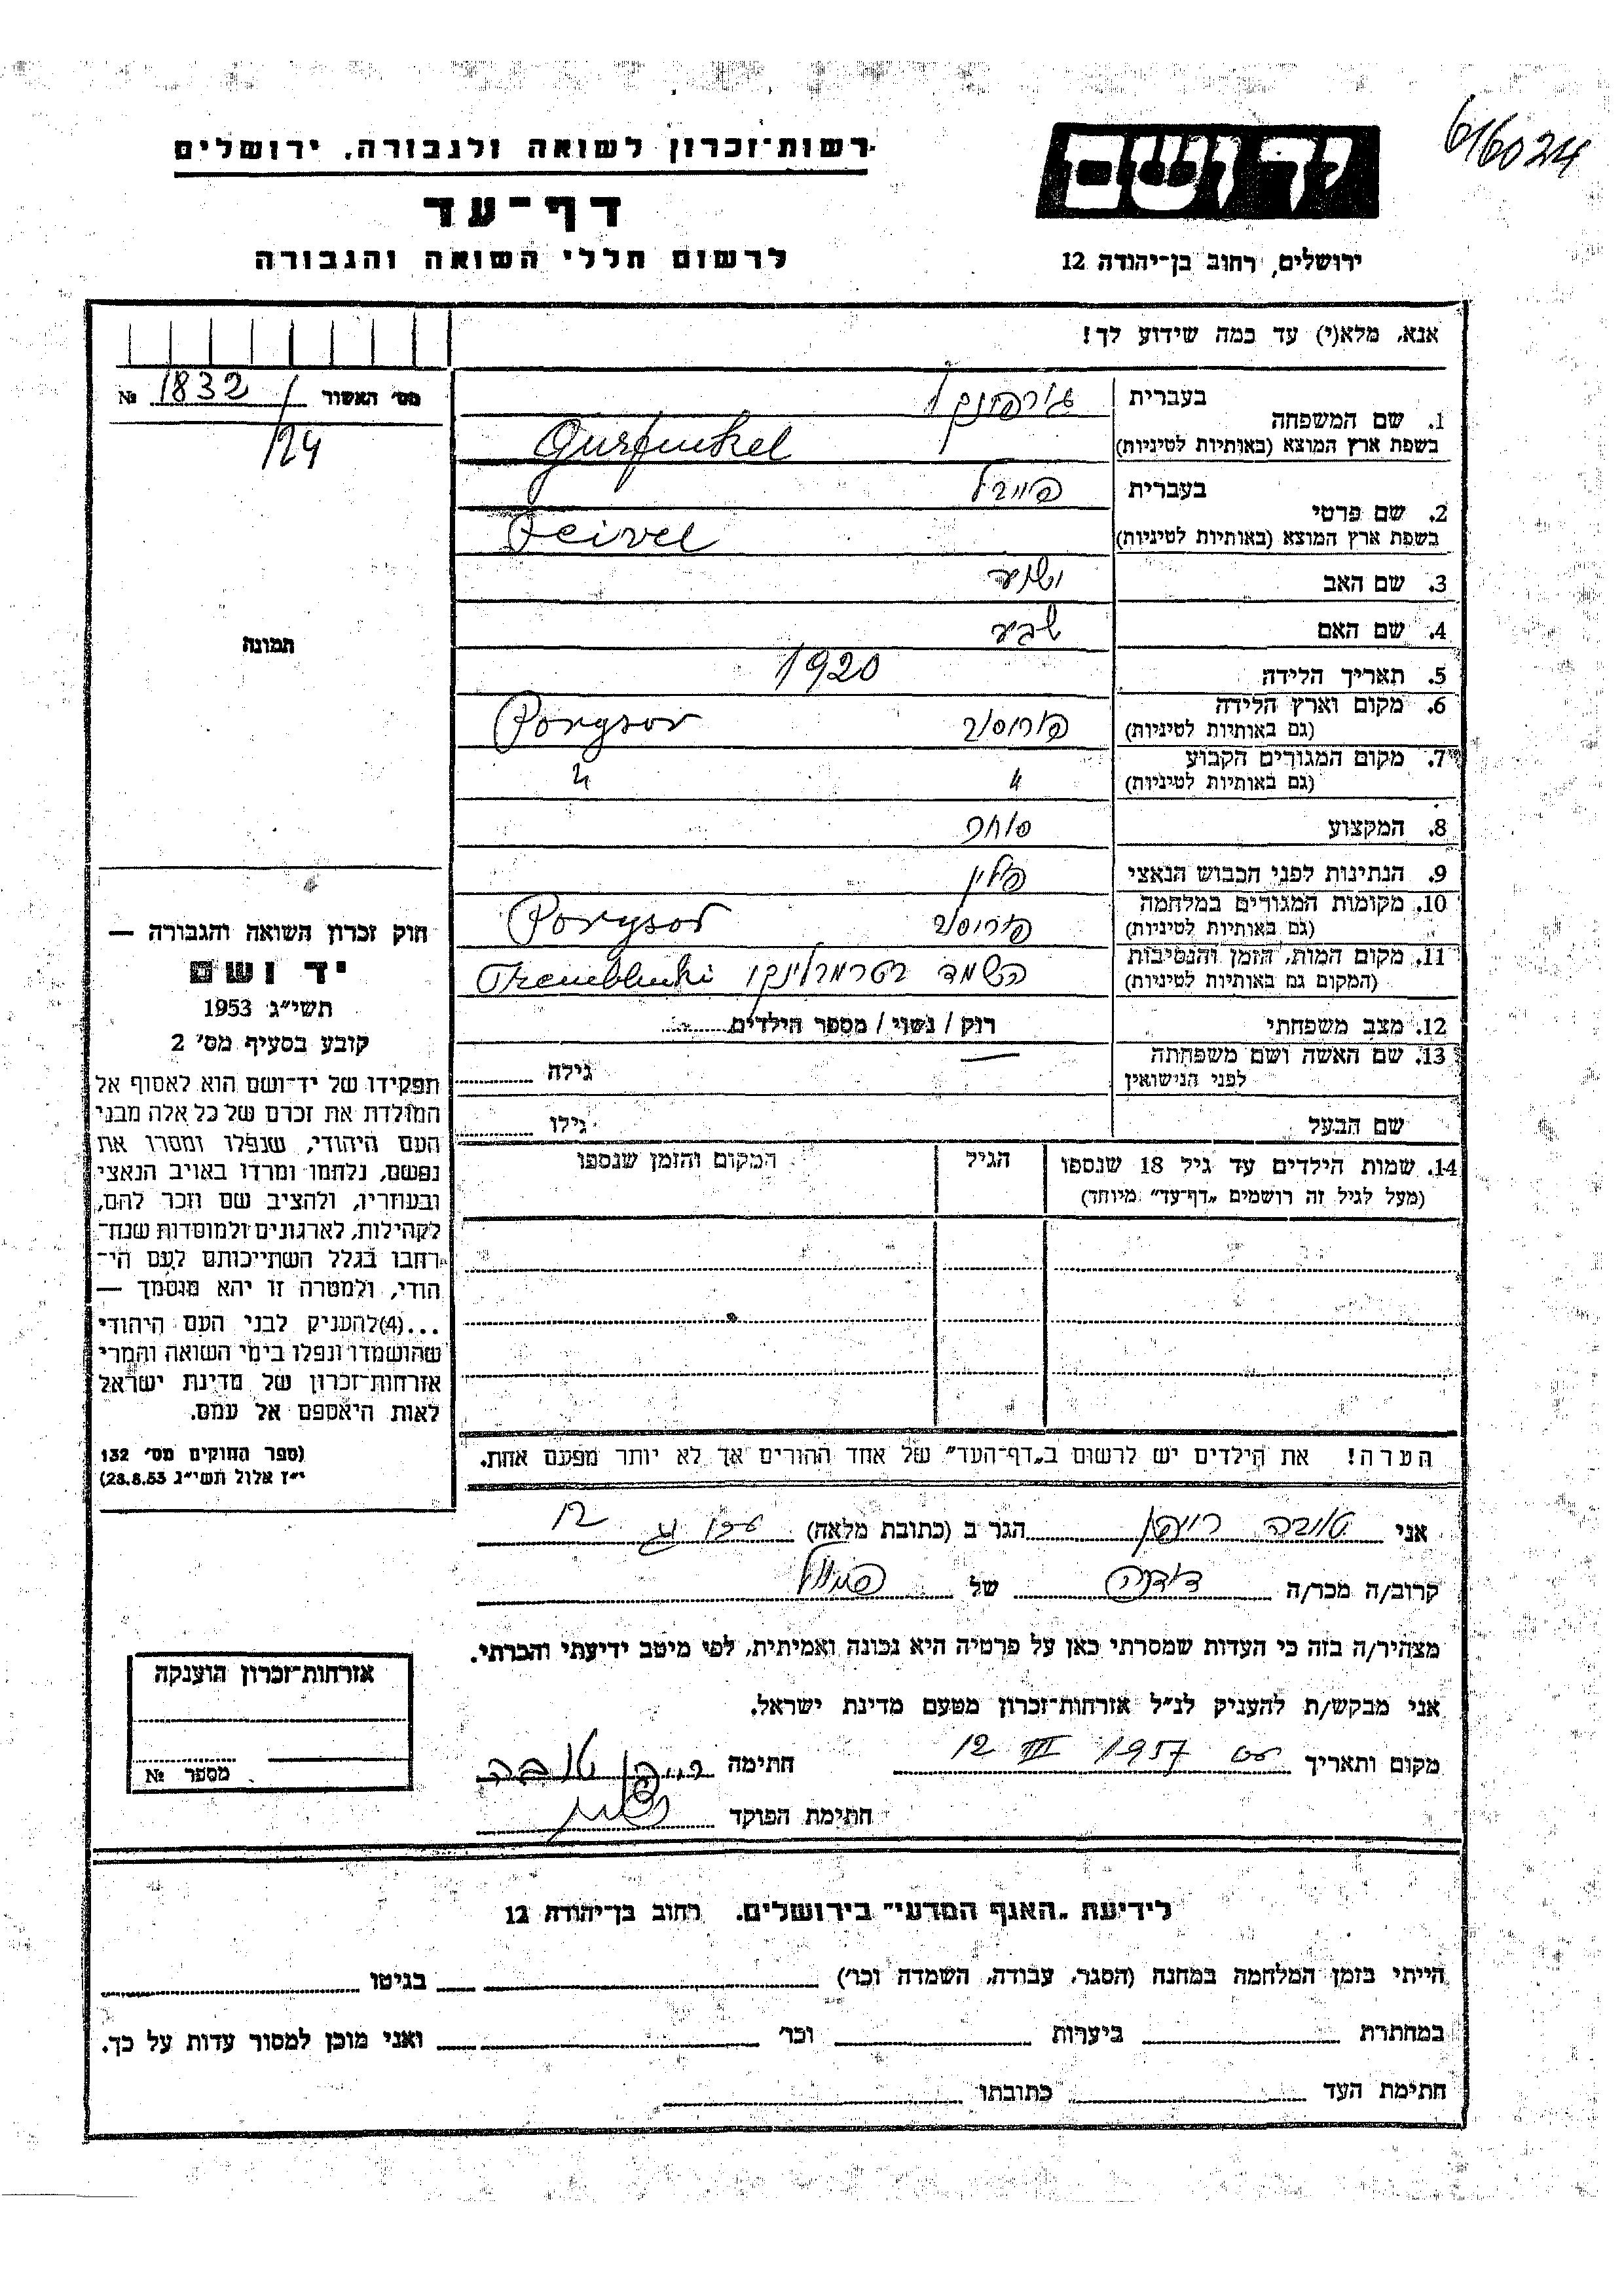 616024
רשות־זכרון לשואה ולגבורה, ירושלים
דף־עד
לרשום חללי השואה והגבורה
יד ושם
ירושלים, רחוב בן־יהודה 12
אנא, מלא(י) עד כמה שידוע לך!
מס׳ האשור 1832 №
/24
תמונה
1. שם המשפחה
בעברית גורפינקל
בשפת ארץ המוצא (באותיות לטיניות) Gurfinkel
2. שם פרטי
בעברית פייבל
בשפת ארץ המוצא (באותיות לטיניות) Feivel
3. שם האב
4. שם האם שבע
5. תאריך הלידה 1920
6. מקום וארץ הלידה
(גם באותיות לטיניות) פוריסוב Porysov
7. מקום המגורים הקבוע
(גם באותיות לטיניות) " "
8. המקצוע סוחר
9. הנתינות לפני הכבוש הנאצי פולין
10. מקומות המגורים במלחמה
(גם באותיות לטיניות) פוריסוב Porysov
11. מקום המות, הזמן והנסיבות
(המקום גם באותיות לטיניות) הושמד בטרמבלינקי Tremblinki
12. מצב משפחתי רוק / נשוי / מספר הילדים
13. שם האשה ושם משפחתה
לפני הנישואין גילה
שם הבעל גילו
14. שמות הילדים עד גיל 18 שנספו
(מעל לגיל זה רושמים „דף־עד” מיוחד)
הגיל
המקום והזמן שנספו
הערה! את הילדים יש לרשום ב„דף־העד” של אחד ההורים אך לא יותר מפעם אחת.
חוק זכרון השואה והגבורה —
יד ושם
תשי״ג 1953
קובע בסעיף מס׳ 2
תפקידו של יד־ושם הוא לאסוף אל
המולדת את זכרם של כל אלה מבני
העם היהודי, שנפלו ומסרו את
נפשם, נלחמו ומרדו באויב הנאצי
ובעוזריו, ולהציב שם וזכר להם,
לקהילות, לארגונים ולמוסדות שנח־
רבו בגלל השתייכותם לעם הי־
הודי, ולמטרה זו יהא מוסמך —
...(4)להעניק לבני העם היהודי
שהושמדו ונפלו בימי השואה והמרי
אזרחות־זכרון של מדינת ישראל
לאות היאספם אל עמם.
(ספר החוקים מס׳ 132
י״ז אלול תשי״ג 28.8.53)
אני טובה הגר ב (כתובת מלאה) 12
קרוב/ה מכר/ה דודה של
מצהיר/ה בזה כי העדות שמסרתי כאן על פרטיה היא נכונה ואמיתית, לפי מיטב ידיעתי והכרתי.
אני מבקש/ת להעניק לנ״ל אזרחות־זכרון מטעם מדינת ישראל.
מקום ותאריך 12 III 1957 חתימה טובה
חתימת הפוקד
אזרחות־זכרון הוענקה
מספר №
לידיעת „האגף המדעי” בירושלים, רחוב בן־יהודה 12
הייתי בזמן המלחמה במחנה (הסגר, עבודה, השמדה וכו׳) בגיטו
במחתרת ביערות וכו׳ ואני מוכן למסור עדות על כך.
חתימת העד כתובתו